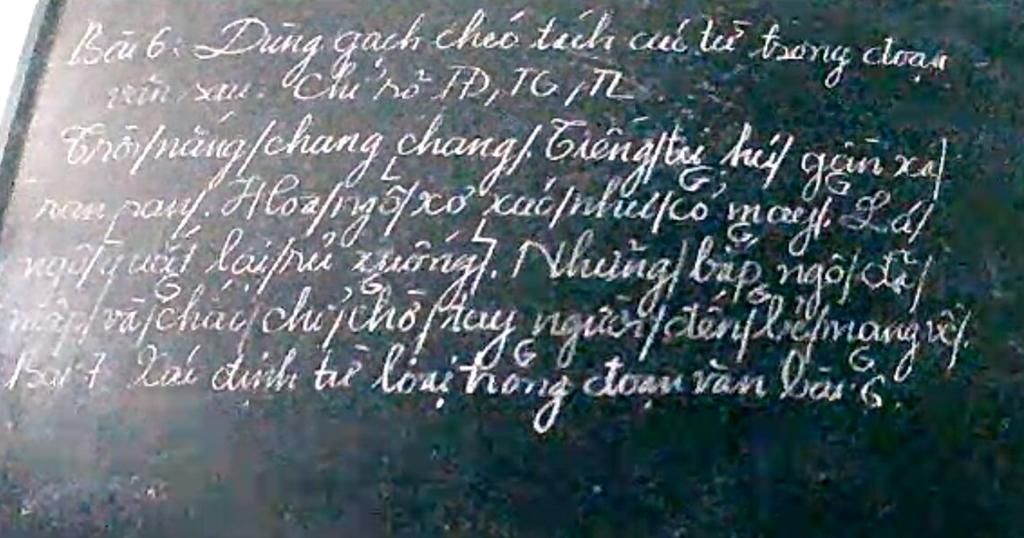 Bài 6: Dùng gạch chéo tách các từ trong đoạn
văn sau. Chỉ rõ TĐ, TG, TL
Trời/nắng/chang chang/. Tiếng/tu hú/ gần xa/
ran ran/. Hoa/ngô/xơ xác/như/cỏ may/. Lá/
ngô/quắt lại/rủ xuống/. Những/bắp ngô/đã/
mập/và/chắc/chỉ/chờ/tay người/đến/bẻ/mang về/.
Bài 7 Xác định từ loại trong đoạn văn bài 6.